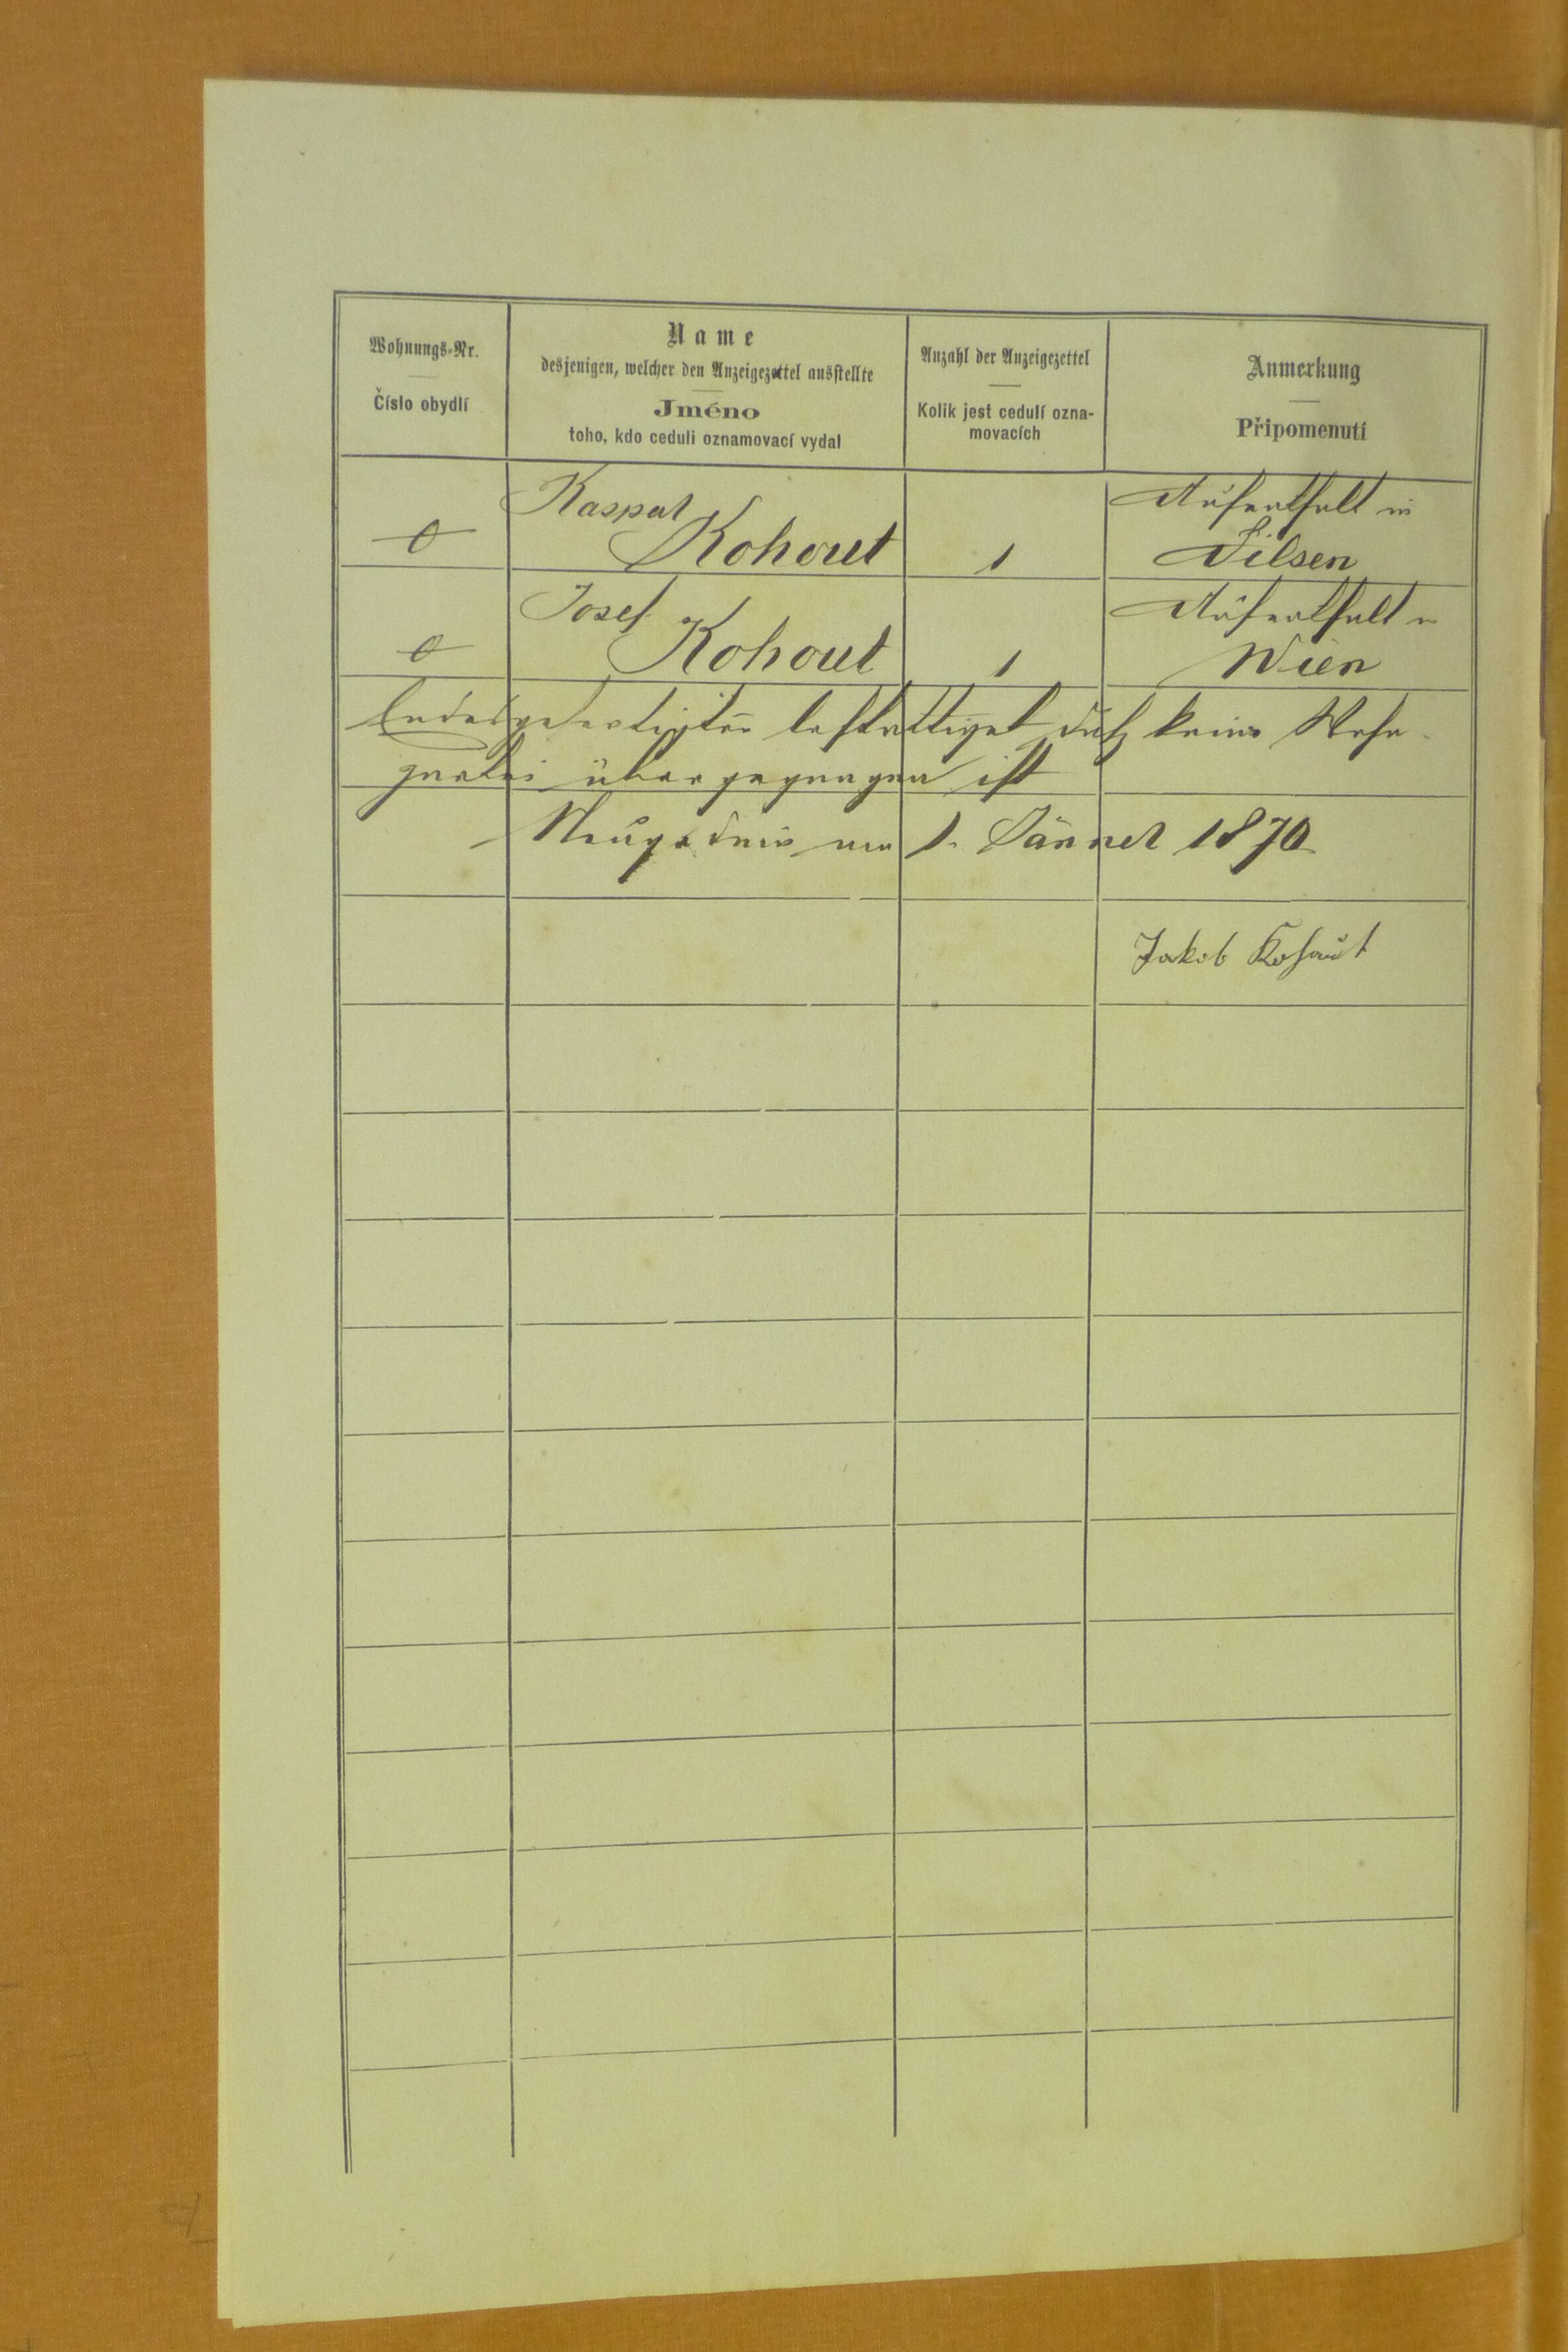 Wohnungs-Nr.
Číslo obydlí
Name
desjenigen, welcher den Anzeigezettel ausstellte
Jméno
toho, kdo ceduli oznamovací vydal
Anzahl der Anzeigezettel
Kolik jest cedulí ozna-
movacích
Anmerkung
Připomenutí
0
Kaspar
Kohout
1
Aufenthalt in
Pilsen
0
Josef
Kohout
1
Aufenthalt in
Wien
Endesgefertigter bestättiget daß keine Wohn-
partei übergegangen ist
Neugedein am 1. Jänner 1870
Jakob Kohaut